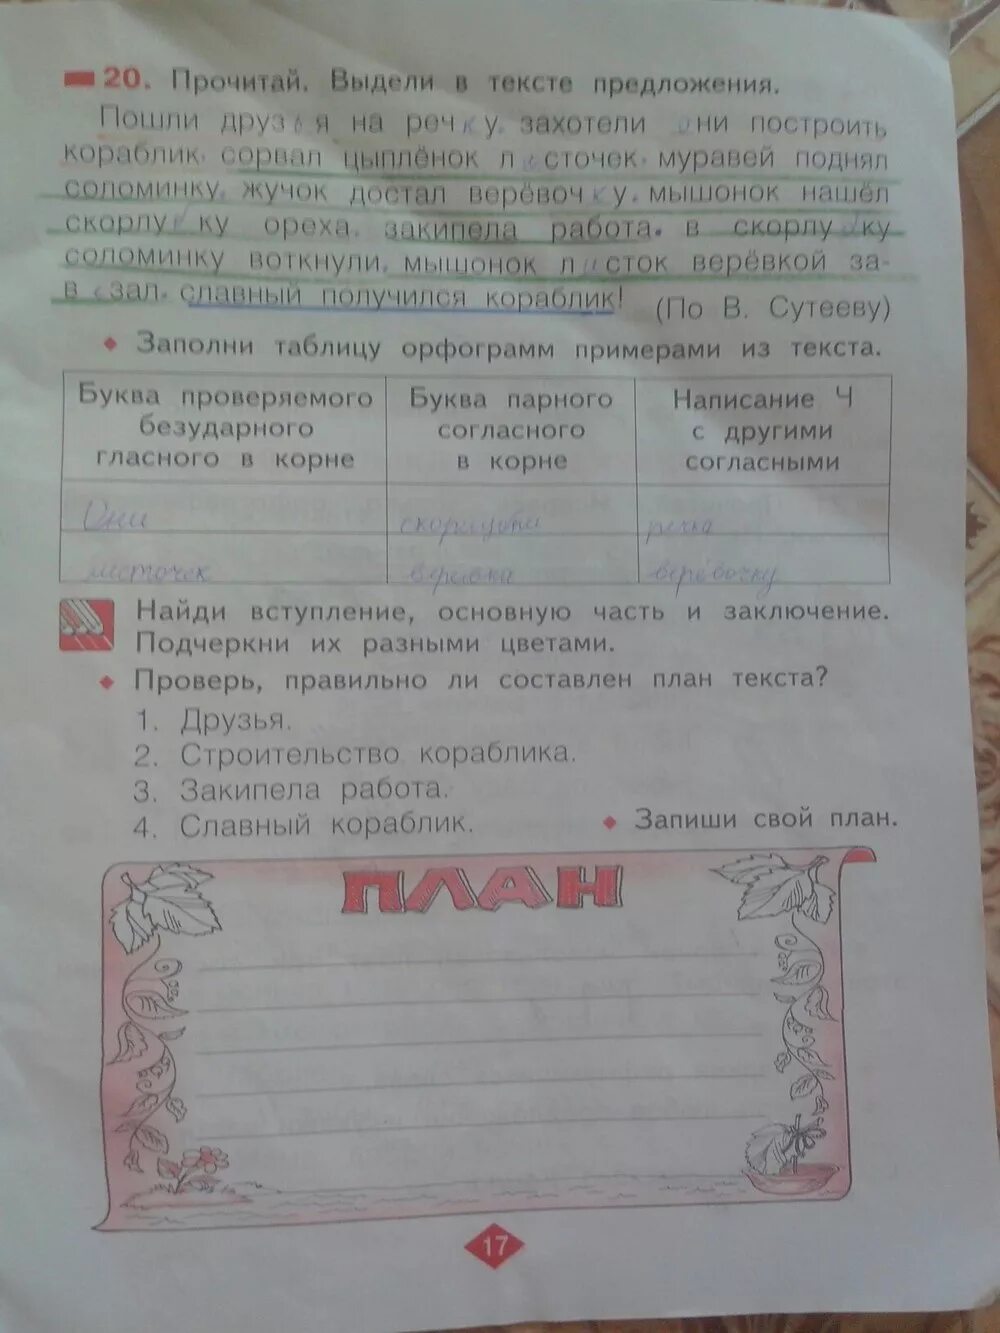 20. Прочитай. Выдели в тексте предложения.
Пошли друзья на речку. захотели они построить
кораблик. сорвал цыплёнок листочек. муравей поднял
соломинку. жучок достал верёвочку. мышонок нашёл
скорлупку ореха. закипела работа. в скорлупку
соломинку воткнули. мышонок листок верёвкой за-
вязал. славный получился кораблик!
(По В. Сутееву)
• Заполни таблицу орфограмм примерами из текста.
Буква проверяемого безударного гласного в корне
Буква парного согласного в корне
Написание Ч с другими согласными
Они скорлупки речка
листочек верёвка верёвочку
Найди вступление, основную часть и заключение.
Подчеркни их разными цветами.
• Проверь, правильно ли составлен план текста?
1. Друзья.
2. Строительство кораблика.
3. Закипела работа.
4. Славный кораблик.
• Запиши свой план.
ПЛАН
17